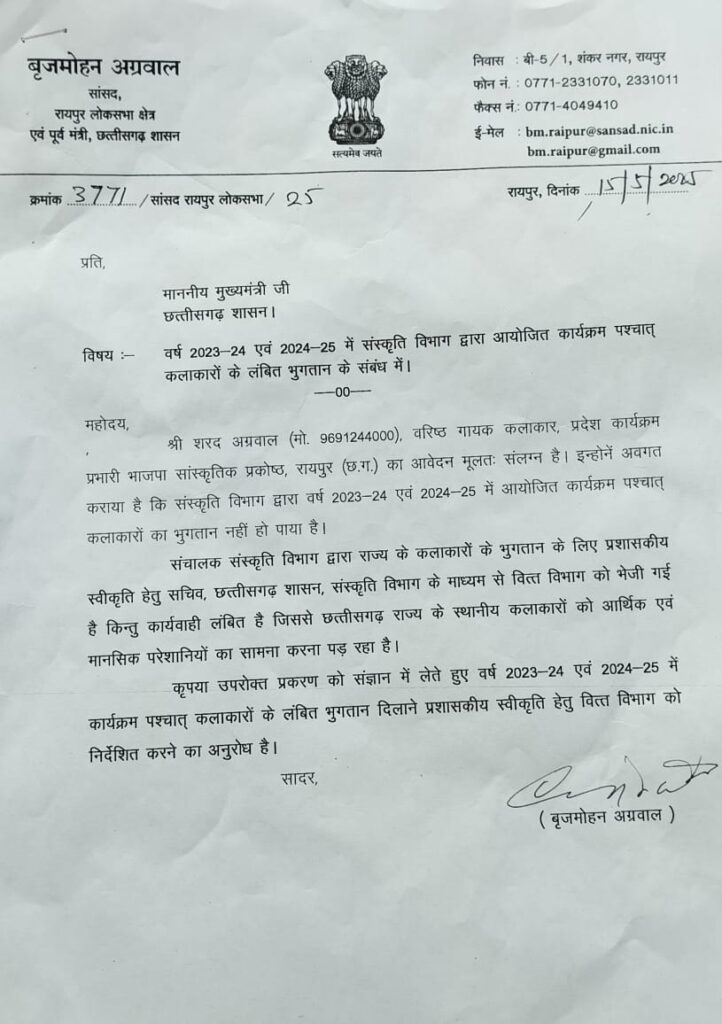 बृजमोहन अग्रवाल
सांसद,
रायपुर लोकसभा क्षेत्र
एवं पूर्व मंत्री, छत्तीसगढ़ शासन
सत्यमेव जयते
निवास : बी-5/1, शंकर नगर, रायपुर
फोन नं. : 0771-2331070, 2331011
फैक्स नं.: 0771-4049410
ई-मेल : bm.raipur@sansad.nic.in
bm.raipur@gmail.com
क्रमांक 3771 /सांसद रायपुर लोकसभा/ 25
रायपुर, दिनांक 15/5/2025
प्रति,
माननीय मुख्यमंत्री जी
छत्तीसगढ़ शासन।
विषय :– वर्ष 2023–24 एवं 2024–25 में संस्कृति विभाग द्वारा आयोजित कार्यक्रम पश्चात्
कलाकारों के लंबित भुगतान के संबंध में।
––00––
महोदय,
श्री शरद अग्रवाल (मो. 9691244000), वरिष्ठ गायक कलाकार, प्रदेश कार्यक्रम
प्रभारी भाजपा सांस्कृतिक प्रकोष्ठ, रायपुर (छ.ग.) का आवेदन मूलतः संलग्न है। इन्होनें अवगत
कराया है कि संस्कृति विभाग द्वारा वर्ष 2023–24 एवं 2024–25 में आयोजित कार्यक्रम पश्चात्
कलाकारों का भुगतान नहीं हो पाया है।
संचालक संस्कृति विभाग द्वारा राज्य के कलाकारों के भुगतान के लिए प्रशासकीय
स्वीकृति हेतु सचिव, छत्तीसगढ़ शासन, संस्कृति विभाग के माध्यम से वित्त विभाग को भेजी गई
है किन्तु कार्यवाही लंबित है जिससे छत्तीसगढ़ राज्य के स्थानीय कलाकारों को आर्थिक एवं
मानसिक परेशानियों का सामना करना पड़ रहा है।
कृपया उपरोक्त प्रकरण को संज्ञान में लेते हुए वर्ष 2023–24 एवं 2024–25 में
कार्यक्रम पश्चात् कलाकारों के लंबित भुगतान दिलाने प्रशासकीय स्वीकृति हेतु वित्त विभाग को
निर्देशित करने का अनुरोध है।
सादर,
( बृजमोहन अग्रवाल )